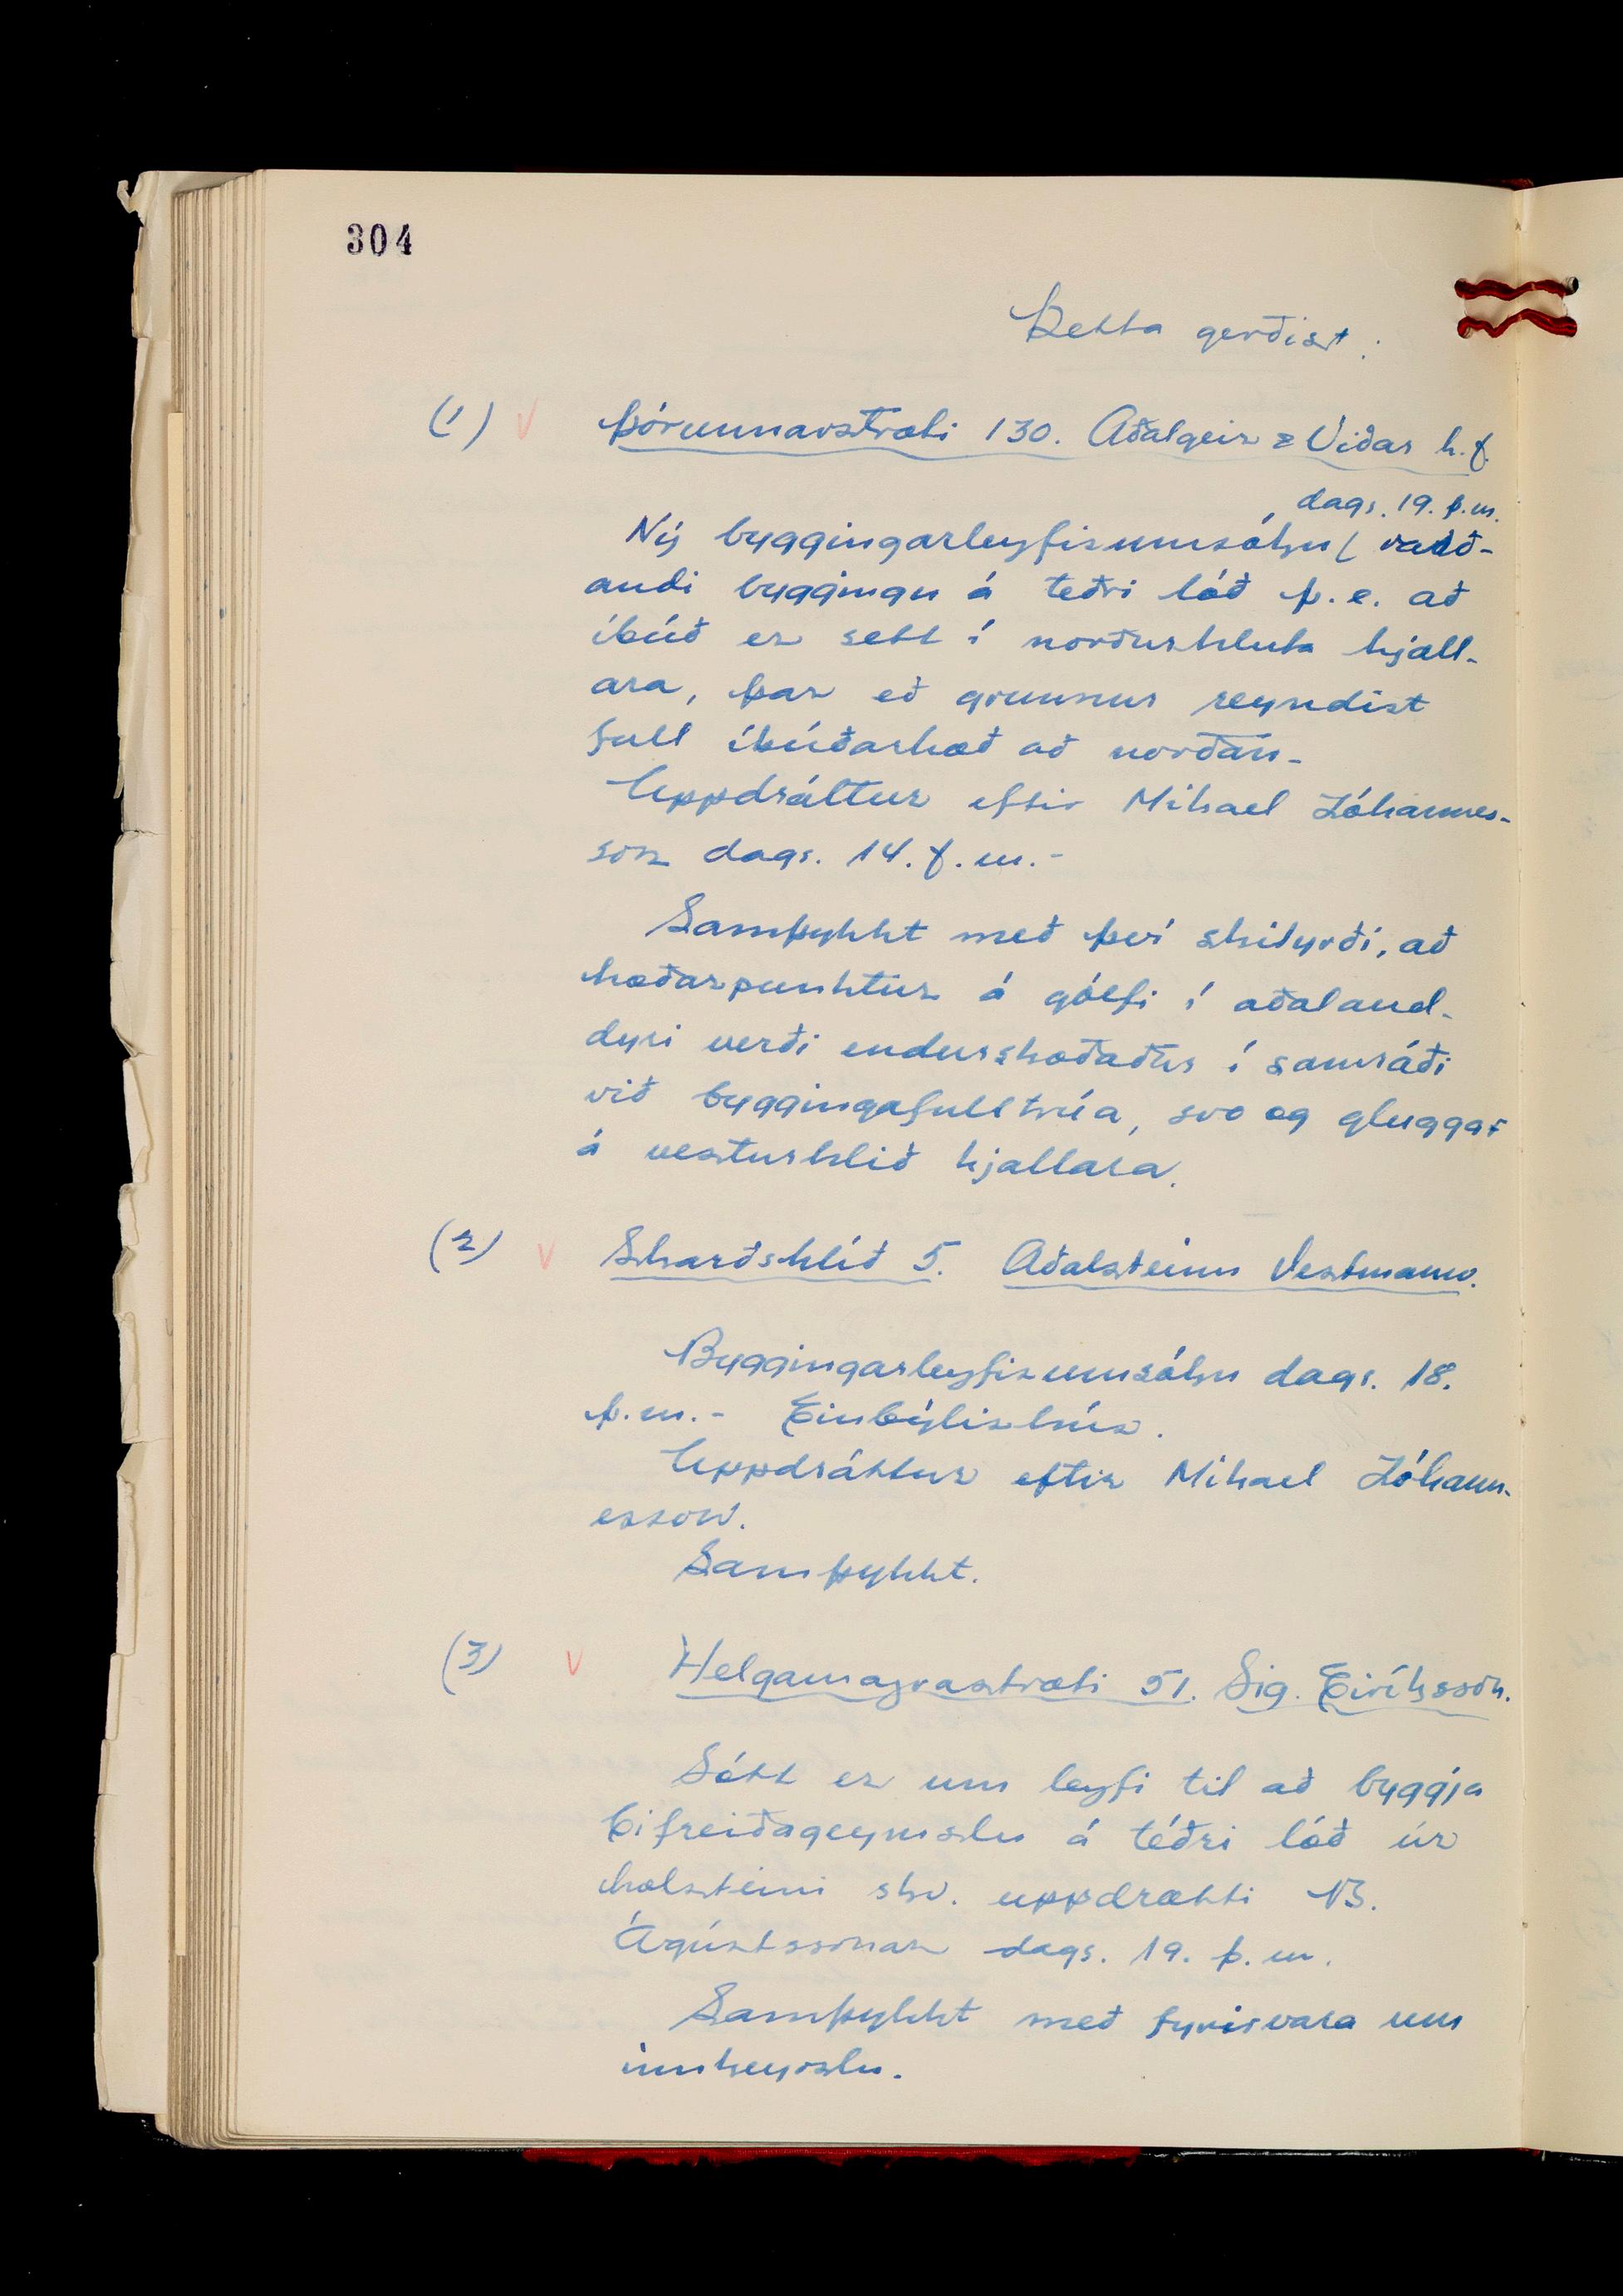 304
Þetta gerðist:
(1) V Þórunnarstræti 130. Aðalgeir & Viðar h.f.
, dags. 19. þ.m.
Ný byggingarleyfisumsókn varð-
andi byggingu á téðri lóð þ.e. að
íbúð er sett í norðurhluta kjall-
ara, þar eð grunnur reyndist
full íbúðarhæð að norðan.
Uppdráttur eftir Mikael Jóhannes-
son dags. 14. f.m.-
Samþykkt með því skilyrði, að
hæðarpunktur á gólfi í aðaland-
dyri verði endurskoðaður í samráði
við byggingafulltrúa, svo og gluggar
á vesturhlið kjallara.
(2) V Skarðshlíð 5. Aðalsteinn Vestmann.
Byggingarleyfisumsókn dags. 18.
þ.m.- Einbýlishús.
Uppdráttur eftir Mikael Jóhann-
esson.
Samþykkt.
(3) V Helgamagrastræti 51. Sig. Eiríksson.
Sótt er um leyfi til að byggja
bifreiðageymslu á téðri lóð úr
holsteini skv. uppdrætti B.
Ágústssonar dags. 19. þ.m.
Samþykkt með fyrirvara um
innkeyrslu.